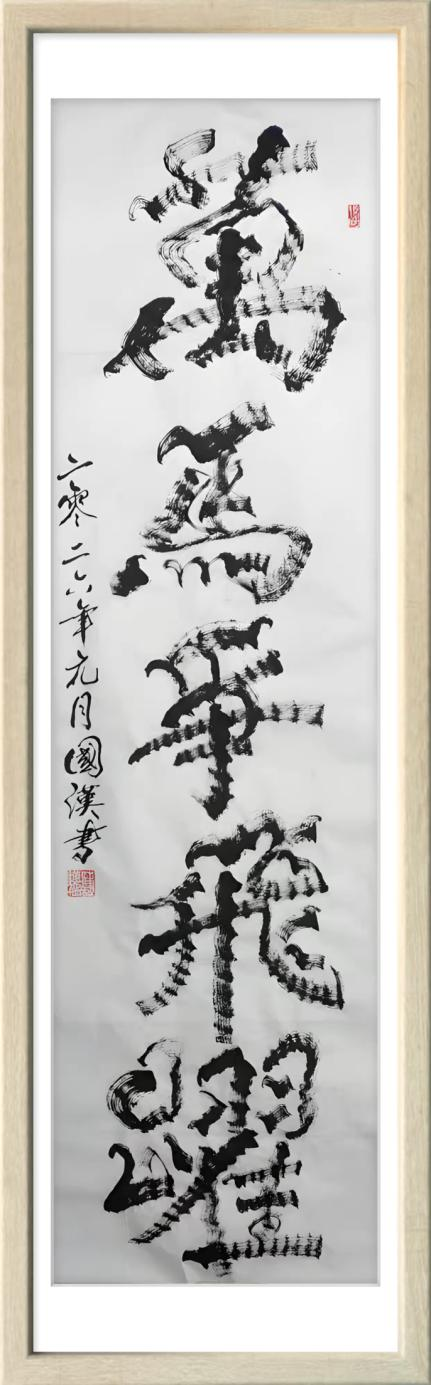 萬馬爭飛躍
二零二六年元月國漢書